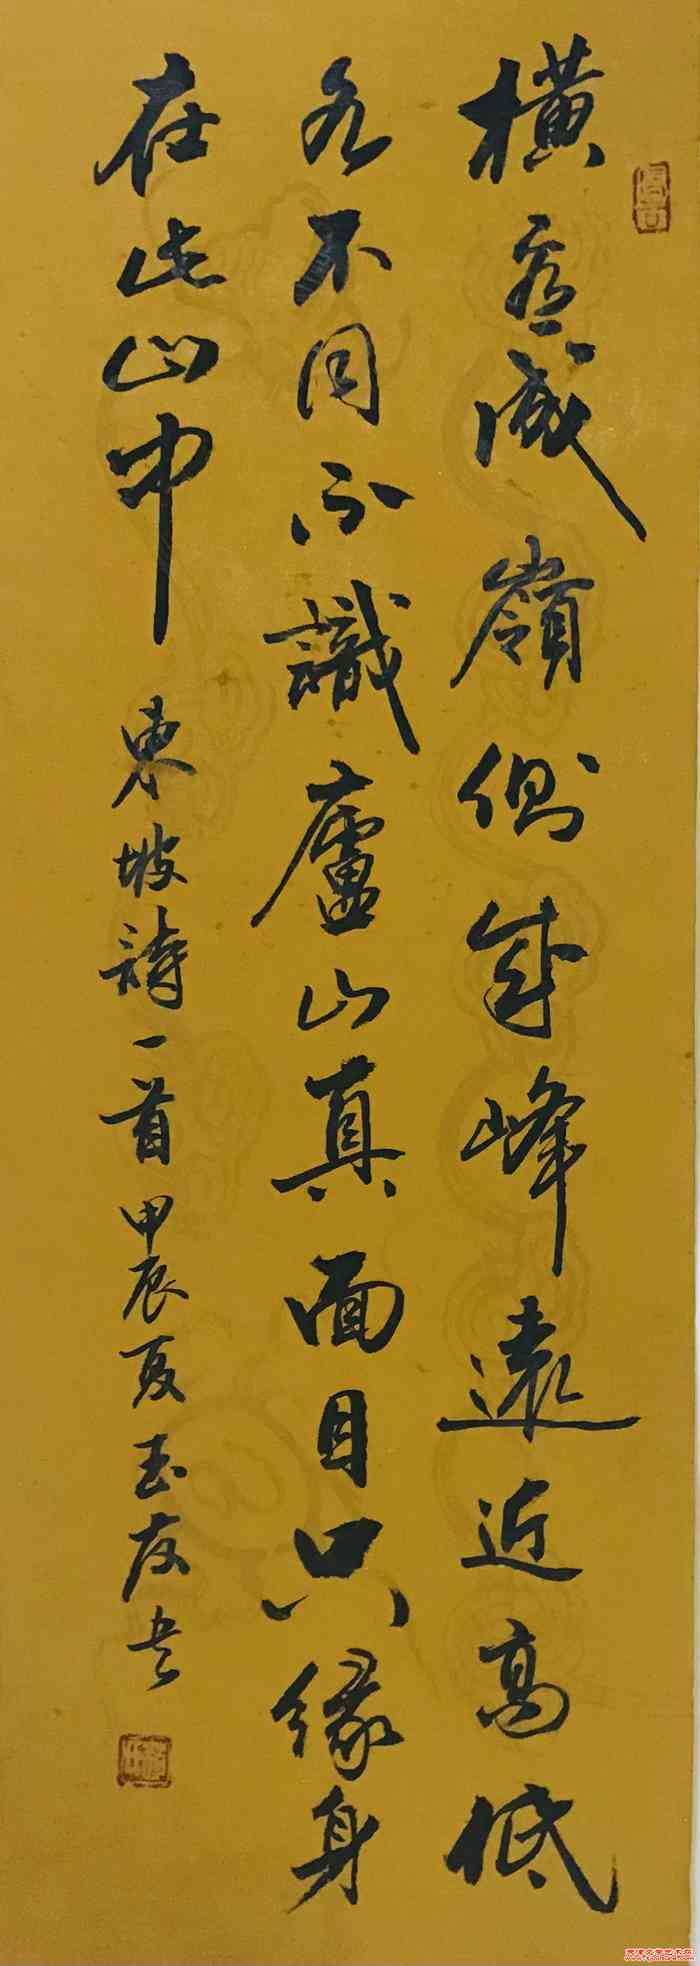 橫看成嶺側成峰遠近高低
各不同不識廬山真面目只緣身
在此山中 東坡詩一首甲辰夏玉友书